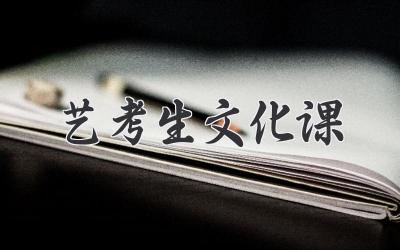 艺考生文化课